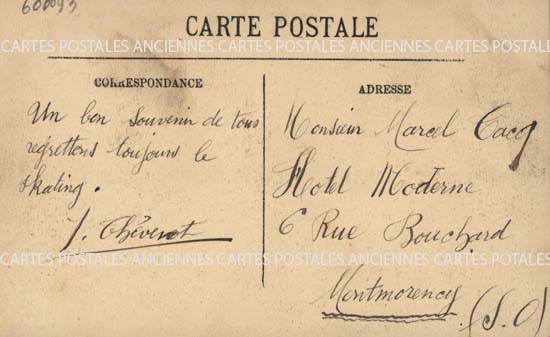 600093
CARTE POSTALE
CARTES POSTALES ANCIENNES CARTES POSTALES ANCIENNES CARTES POSTALES
CORRESPONDANCE
Un bon souvenir de tous
regrettons toujours le
skating.
J. Thévenot
ADRESSE
Monsieur Marcel Cacq
Hotel Moderne
6 Rue Bouchard
Montmorency
(S.O)
CARTES POSTALES ANCIENNES CARTES POSTALES ANCIENNES CARTES POSTALES